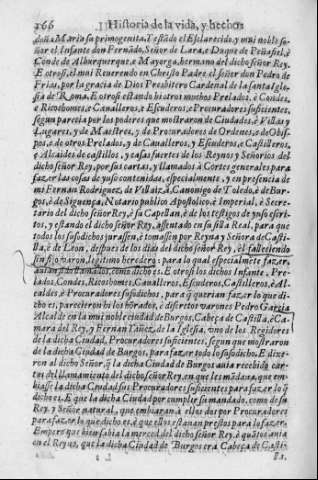 166 Historia de la vida, y hechos
doña Maria su primogenita. Y estãdo el Esclarecido, y mui noble señor
el Infante don Fernãdo, Señor de Lara, e Duque de Peñafiel, è
Conde de Alburquerque, e Mayorga, hermano del dicho señor Rey.
E otrosi, el mui Reverendo en Christo Padre, el señor don Pedro de
Frias, por la gracia de Dios Presbitero Cardenal de la santa Iglesia
de Roma. E otrosi estando hi otros muchos Prelados, è Condes,
è Ricoshomes, e Cavalleros, è Escuderos, e Procuradores suficientes,
segun parecia por los poderes que mostraron de Ciudades, è Villas y
Lugares, y de Maestres, y de Procuradores de Ordenes, e de Obispos,
e de otros Prelados, y de Cavalleros, y Escuderos, e Castilleros,
è Alcaides de castillos, y casas fuertes de los Reynos y Señorios del
dicho señor Rey, por sus cartas, y llamados à Cortes generales para
fazer las cosas de yuso contenidas, especialmente, y en presencia de
mi Fernan Rodriguez, de Canonigo de Toledo, è de Burgos,
è de Siguença, Notario publico Apostolico, è Imperial, è Secretario
del dicho señor Rey, è su Capellan, è de los testigos de yuso escritos,
y estando el dicho señor Rey, assentado en su silla Real, para que
todos los susodichos jurassen, è tomassen por Reyna y Señora de Castilla,
è de Leon, despues de los dias del dicho señor Rey, el falleciendo
sin fijo varon, legitimo heredero: para lo qual especialmete fazer,
auian estado como dicho es. E otrosi los dichos Infante, Prelados,
Condes, Ricoshomes, Cavalleros, Escuderos, Castilleros, è Alcaldes
è Procuradores susodichos, para que querian fazer lo que dicho
es, parecieron hi los hõrados, è discretos varones Pedro Garcia
Alcalde en la mui noble ciudad de Burgos, Cabeça de Castilla, è Camara
del Rey, y Fernan Yañez, de la Iglesia, vno de los Regidores
de la dicha Ciudad, Procuradores suficientes, segun que mostraron
de la dicha Ciudad de Burgos, para fazer todo lo susodicho. E dixeron
al dicho Señor, q̃ la dicha Ciudad de Burgos auia recebida cartas
del llamamiento del dicho señor Rey, en que les mãdaua, que embiasse
la dicha Ciudad sus Procuradores suficientes para fazer lo q̃
dicho es. E que la dicha Ciudad por cumplir su mandado, como de su
Rey, y Señor natural, que embiaran à ellos dos por Procuradores
para fazer lo que dicho es, è que ellos estauan prestos para lo fazer.
Empero que bien sabia la merced del dicho señor Rey, è quãtos auia
en el Reyno, que la dicha Ciudad de Burgos era Cabeça de Casti-